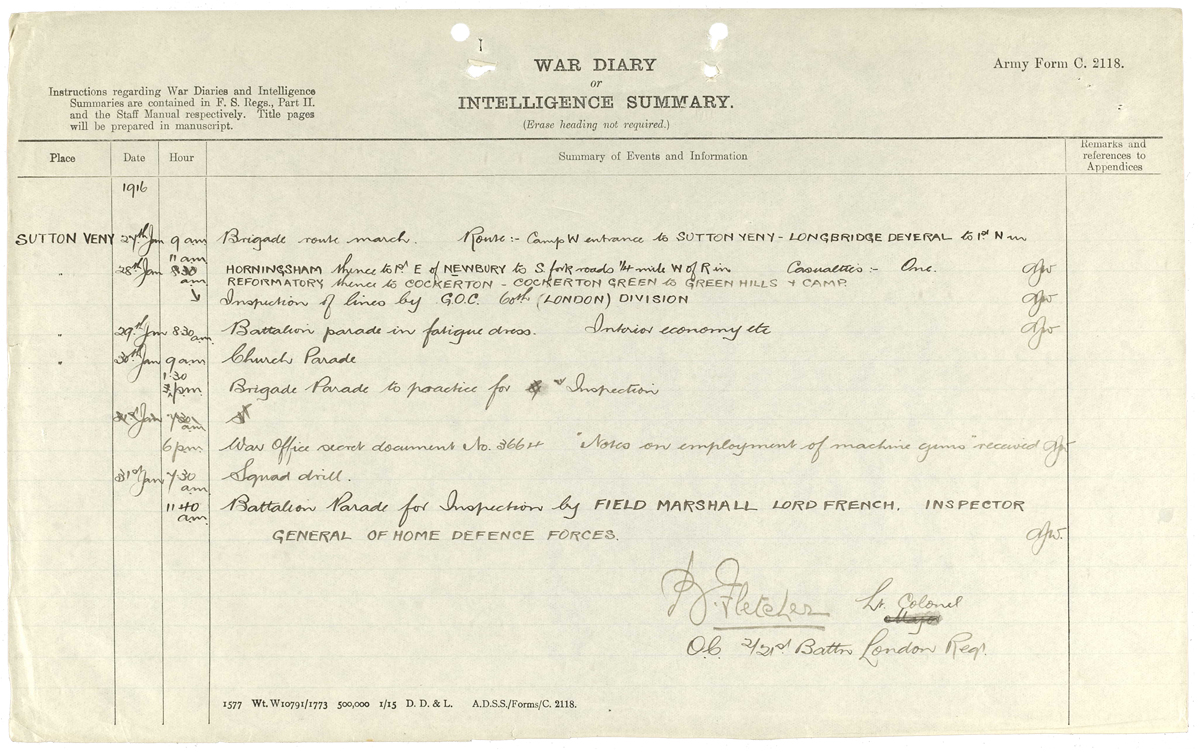 WAR DIARY
or
INTELLIGENCE SUMMARY.
(Erase heading not required.)
Army Form C. 2118.
Instructions regarding War Diaries and Intelligence
Summaries are contained in F. S. Regs., Part II.
and the Staff Manual respectively. Title pages
will be prepared in manuscript.
Place Date Hour Summary of Events and Information Remarks and references to Appendices
1916
SUTTON VENY 27th Jan 9 am Brigade route march. Route:- Camp W entrance to SUTTON VENY - LONGBRIDGE DEVERAL to 1st N in
" 28th Jan 11 am HORNINGSHAM thence to pt E of NEWBURY to S. fork roads 1/4 mile W of R in Casualties:- One.
REFORMATORY thence to COCKERTON - COCKERTON GREEN to GREEN HILLS & CAMP.
Inspection of lines by G.O.C. 60th (LONDON) DIVISION
" 29th Jan 8 30 am Battalion parade in fatigue dress. Interior economy etc
" 30th Jan 9 am Church Parade
1.30 pm Brigade Parade to practice for Inspection
31st Jan 7 30 am
6 pm War Office secret document No. 3664 "Notes on employment of machine guns" received
31st Jan 7.30 am Squad drill.
11 40 am Battalion Parade for Inspection by FIELD MARSHALL LORD FRENCH. INSPECTOR
GENERAL OF HOME DEFENCE FORCES.
Fletcher Lt. Colonel
Major
O.C. 2/21st Battn London Regt.
1577 Wt. W10791/1773 500,000 1/15 D. D. & L. A.D.S.S./Forms/C. 2118.